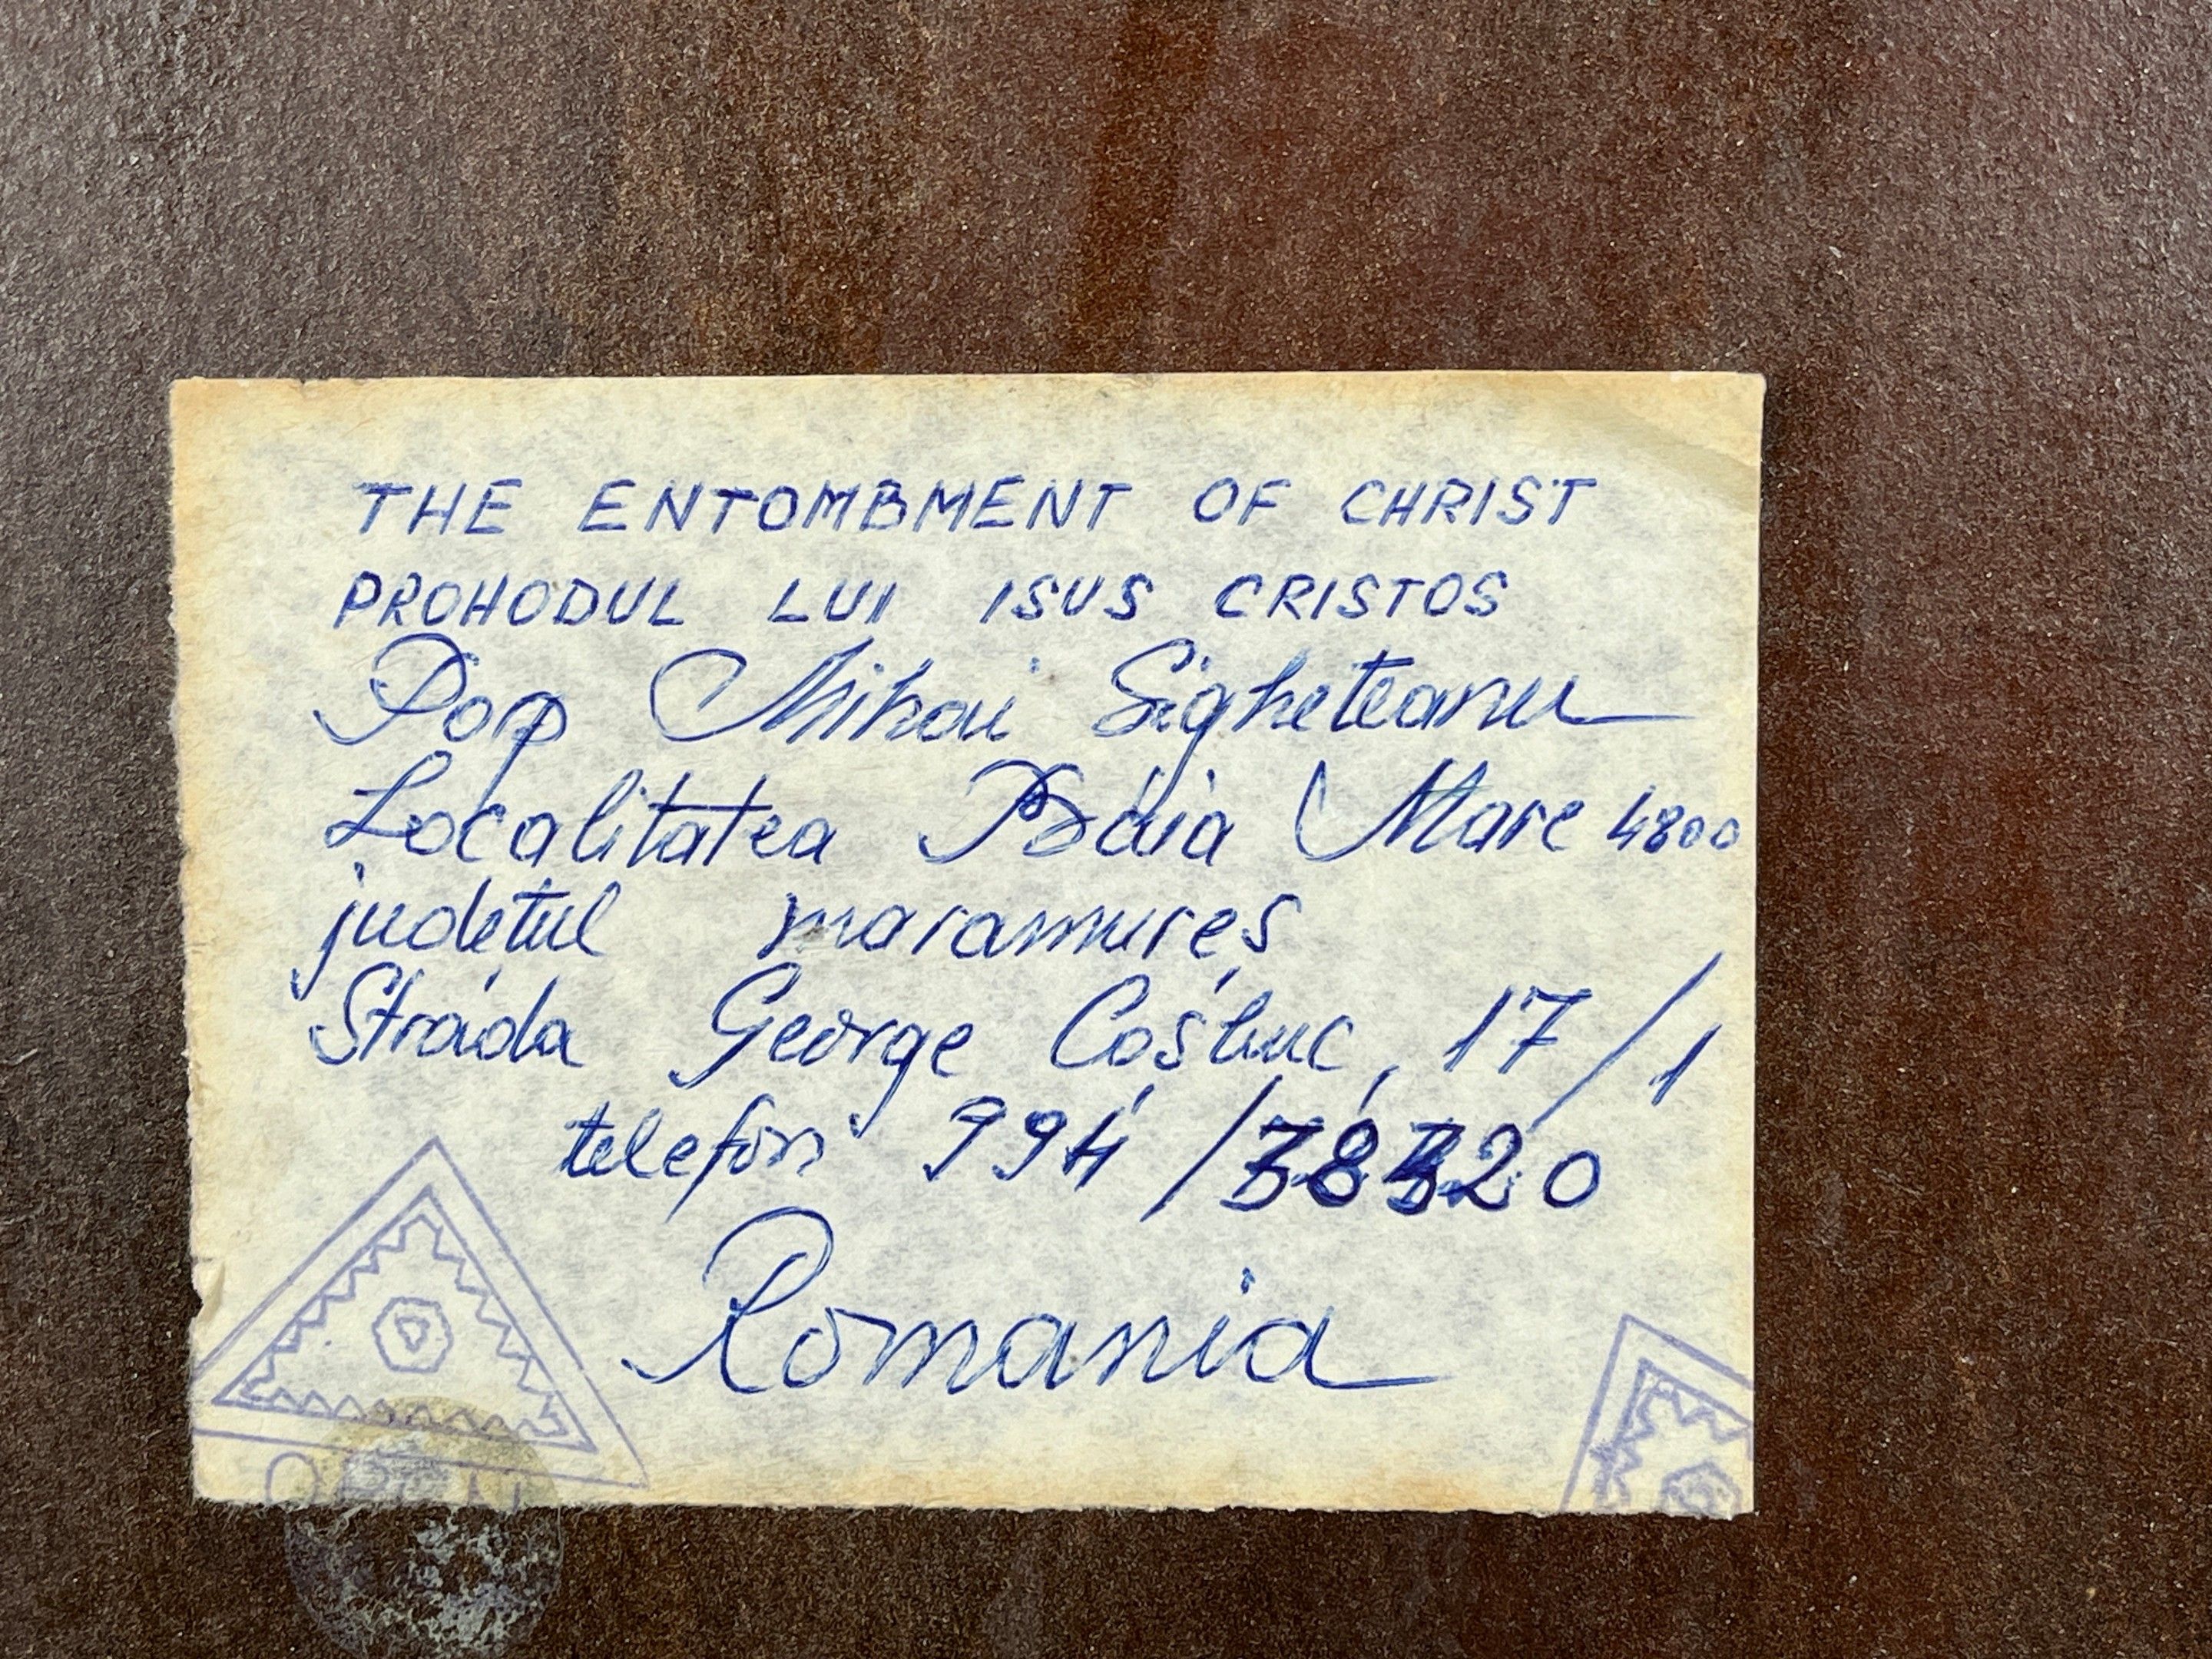 THE ENTOMBMENT OF CHRIST
PROHODUL LUI ISUS CRISTOS
Pop Mihai Sigheteanu
Localitatea Baia Mare 4800
județul maramureș
Strada George Coșbuc, 17/1
telefon 994/38320
Romania
OPEN